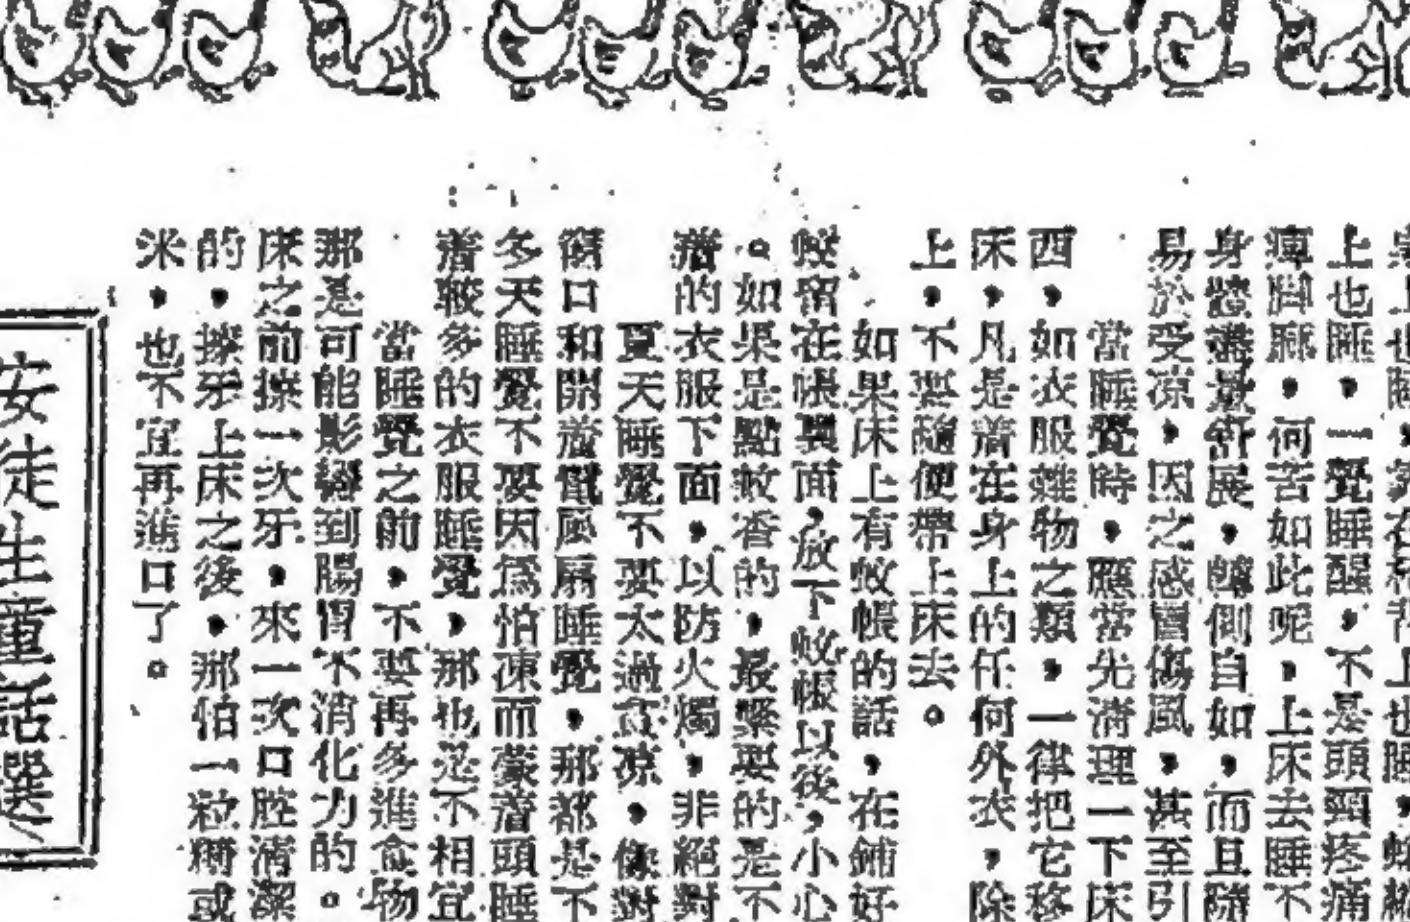 上也睡，一覺睡醒，不是頭頸疼痛
痺脚麻，何苦如此呢，上床去睡不
身體儘量舒展，轉側自如，而且隨
易於受凉，因之感冒傷風，甚至引
當睡覺時，應當先清理一下床
西，如衣服雜物之類，一律把它移
床，凡是着在身上的任何外衣，除
上，不要隨便帶上床去。
如果床上有蚊帳的話，在鋪好
留在帳裏面，放下蚊帳以後，小心
。如果是點蚊香的，最緊要的是不
的衣服下面，以防火燭，非絕對
夏天睡覺不要太過貪凉，像對
窗口和開着電風扇睡覺，那都是不
多天睡覺不要因爲怕凍而蒙着頭睡
着較多的衣服睡覺，那也是不相宜
當睡覺之前，不要再多進食物
那是可能影響到腸胃不消化力的。
床之前擦一次牙，來一次口腔清潔
的，擦牙上床之後，那怕一粒糖或
米，也不宜再進口了。
安徒生童話選